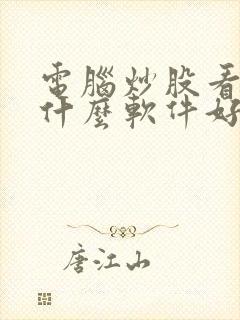 電腦炒股看
什麼軟件好
唐江山